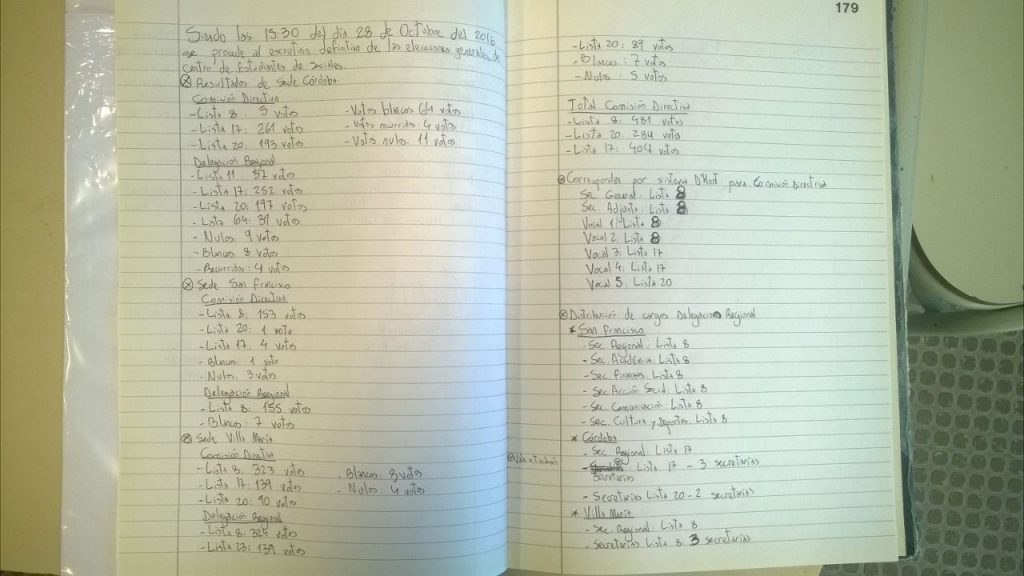 Siendo las 15:30 del día 28 de Octubre del 2016
se procede al escrutinio definitivo de las elecciones generales de
centro de Estudiantes de Sociales.
Resultados de Sede Córdoba
Comisión Directiva
- Lista 8: 5 votos
- Lista 17: 261 votos
- Lista 20: 193 votos
- Votos blancos: 61 votos
- Votos recurridos: 4 votos
- Votos nulos: 11 votos
Delegación Regional
- Lista 11: 57 votos
- Lista 17: 252 votos
- Lista 20: 197 votos
- Lista 64: 31 votos
- Nulos: 9 votos
- Blancos 8 votos
- Recurridos: 4 votos
Sede San Francisco
Comisión Directiva
- Lista 8: 153 votos
- Lista 20: 1 voto
- Lista 17: 4 votos
- Blancos: 1 voto
- Nulos: 3 votos
Delegación Regional
- Lista 8: 155 votos
- Blancos: 7 votos
Sede Villa María
Comisión Directiva
- Lista 8: 323 votos
- Lista 17: 139 votos
- Lista 20: 90 votos
- Blancos: 3 votos
- Nulos: 4 votos
Delegación Regional
- Lista 8: 324 votos
- Lista 23: 139 votos
179
- Lista 20: 89 votos
- Blancos: 7 votos
- Nulos: 5 votos
Total Comisión Directiva
- Lista 8: 481 votos
- Lista 20: 284 votos
- Lista 17: 404 votos
Corresponden por sistema D'Hont para Comisión Directiva
Sec. General: Lista 8
Sec. Adjunto: Lista 8
Vocal 1: Lista 8
Vocal 2: Lista 8
Vocal 3: Lista 17
Vocal 4: Lista 17
Vocal 5: Lista 20
Distribución de cargos Delegación Regional
* San Francisco
- Sec. Regional: Lista 8
- Sec. Académica: Lista 8
- Sec. Finanzas: Lista 8
- Sec. Acción Social: Lista 8
- Sec. Comunicación: Lista 8
- Sec. Cultura y Deportes: Lista 8
* Córdoba
- Sec. Regional: Lista 17
Lista 17 - 3 secretarias
Secretarias
- Secretarias Lista 20 - 2 secretarias
* Villa María
- Sec. Regional: Lista 8
- Secretarias Lista 8: 3 secretarias